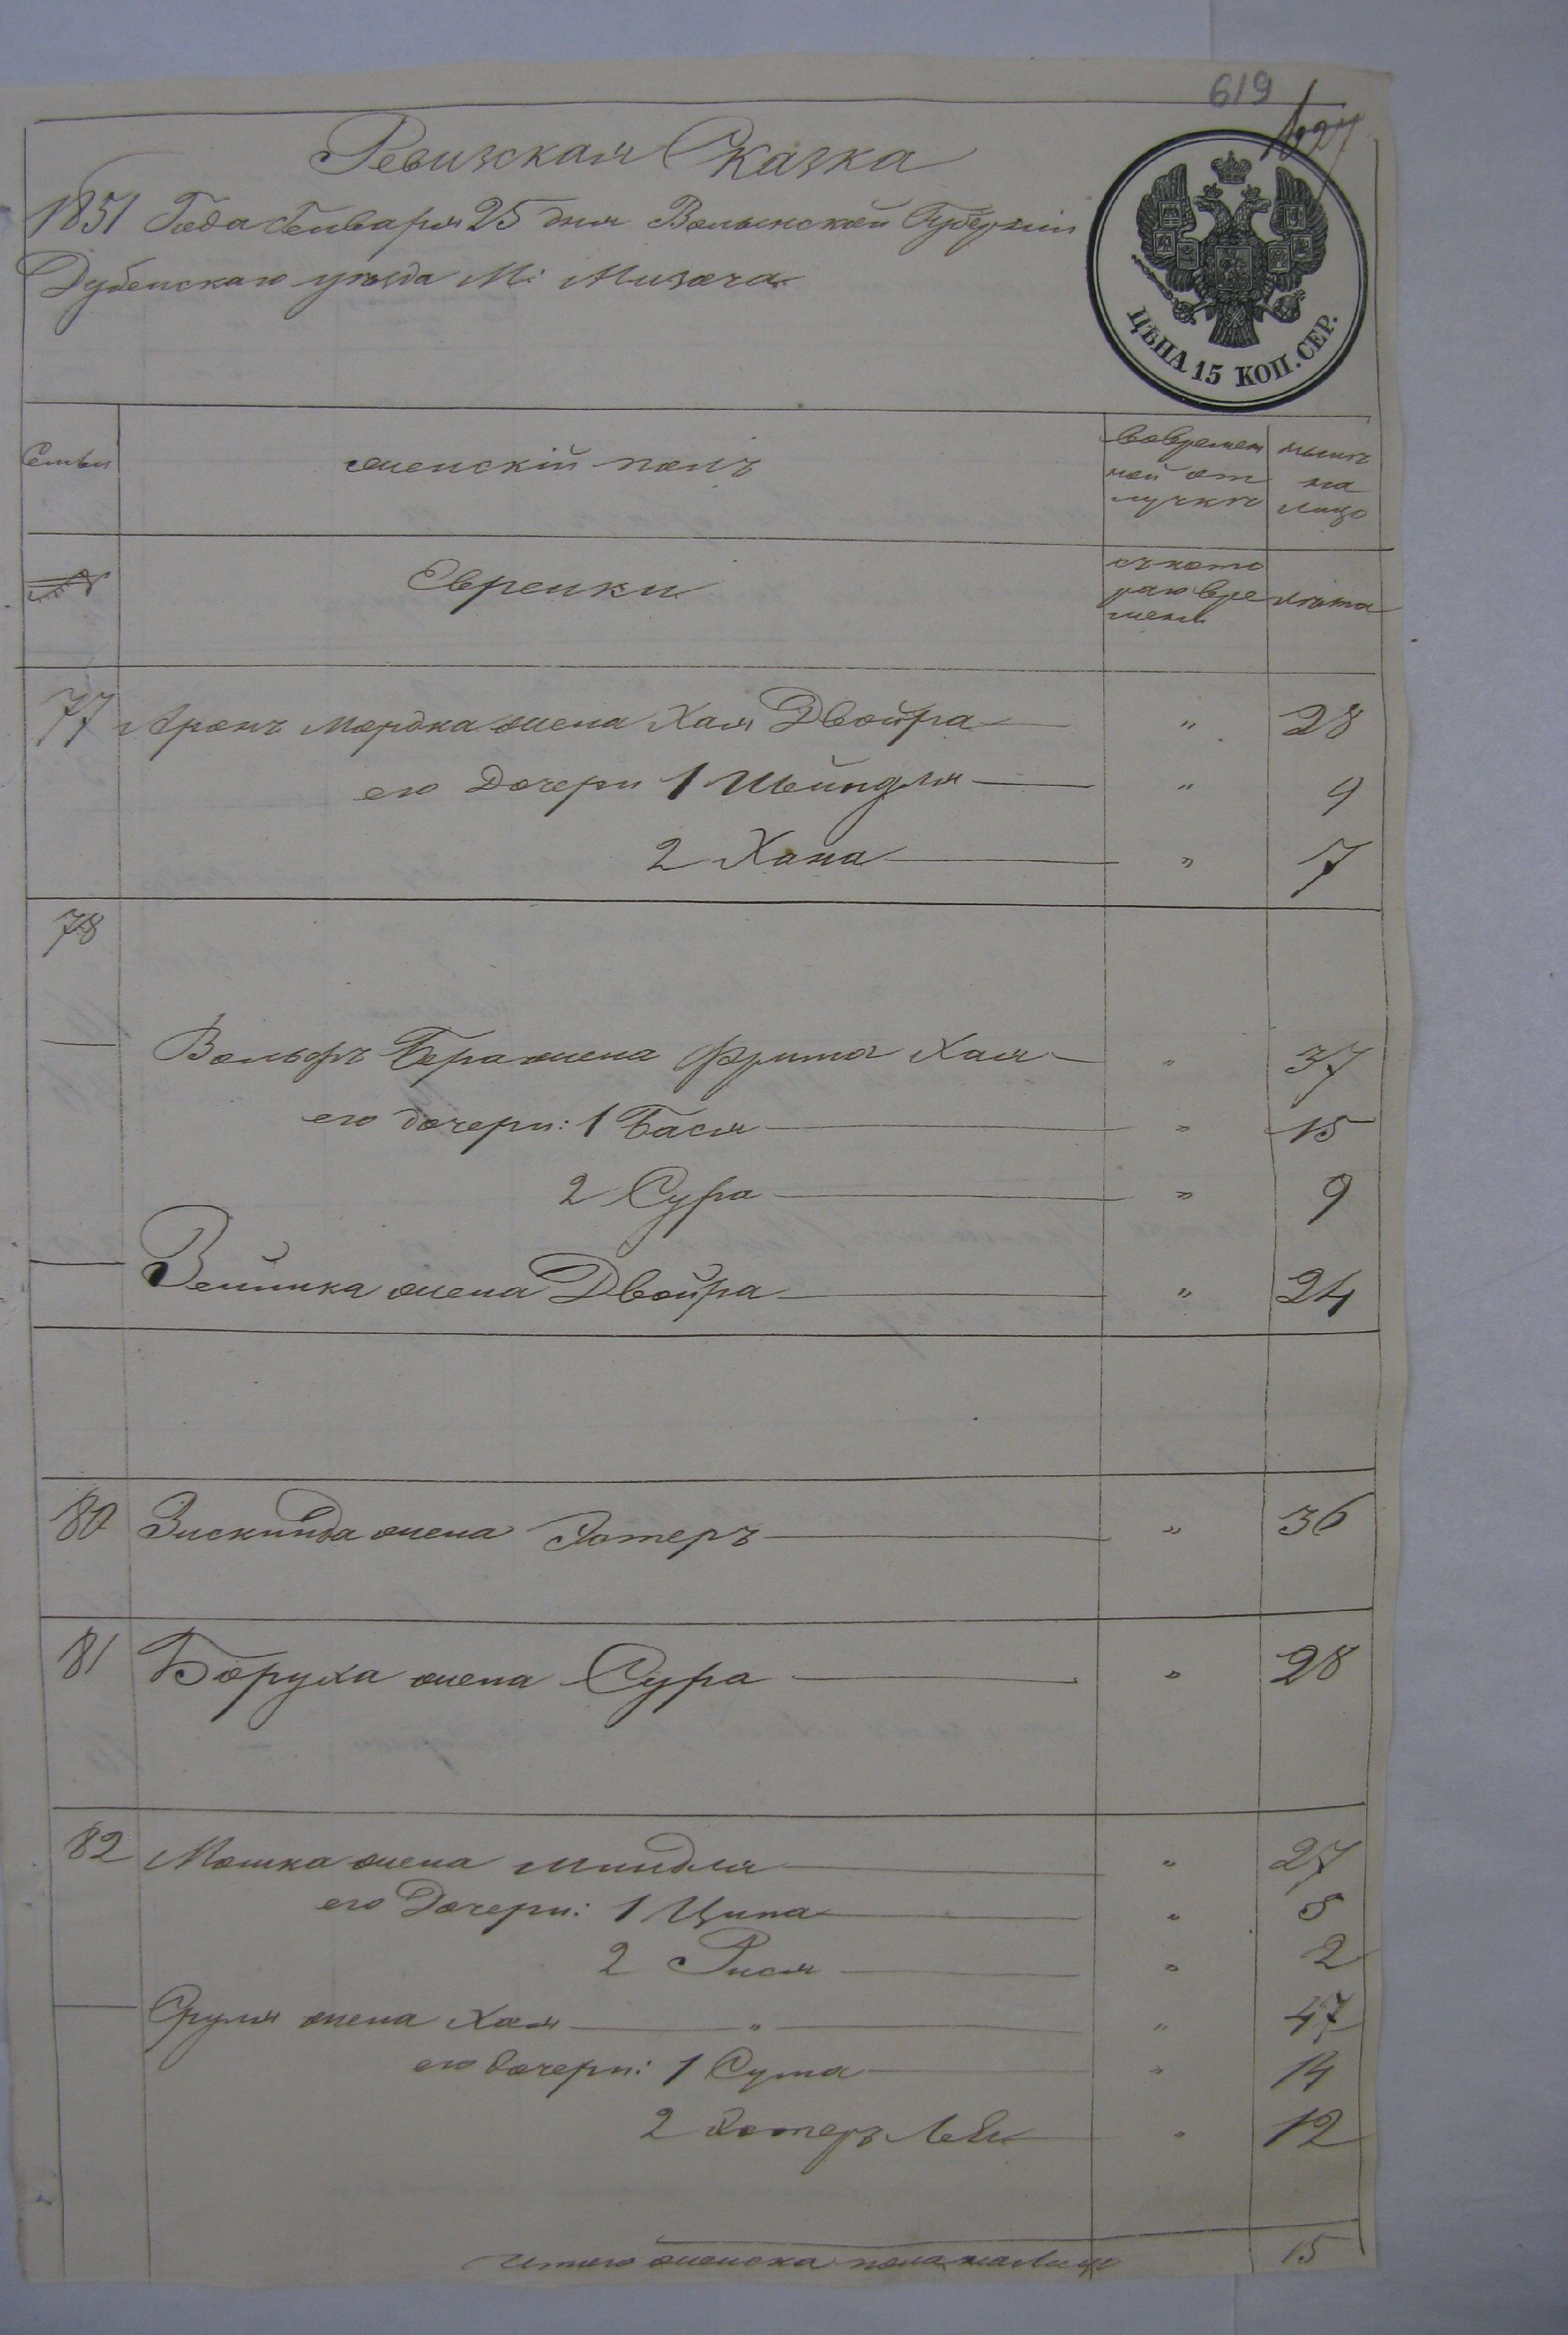 619
1027
Ревизская Сказка
1851 Года Генваря 25 дня Волынской Губернии
Дубенскаго уезда М: Мизоча
ЦѢНА 15 КОП. СЕР.
Семьи
женскій полъ
вовремен
ной от
лучкѣ
нынѣ
на
лицо
Еврейки
съ кото
раго вре
мени
лѣта
77 Аронъ Мордка жена Хая Двойра " 28
его Дочери 1 Шейндля " 9
2 Хана " 7
78
Вольфъ Бера жена Фрима Хая " 37
его дочери: 1 Бася " 15
2 Сура " 9
Зейлика жена Двойра " 24
80 Зискинда жена Эстеръ " 36
81 Боруха жена Сура " 28
82 Мошка жена Миндля " 27
его Дочери: 1 Ципа " 5
2 Рися " 2
Сруля жена Хая " " 47
его дочери: 1 Сума " 14
2 Эстеръ Лея " 12
итого женска пола на Лицо 15